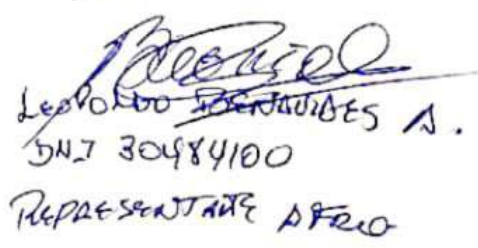 LEOPOLDO BENAVIDES A.
DNI 30484100
REPRESENTANTE